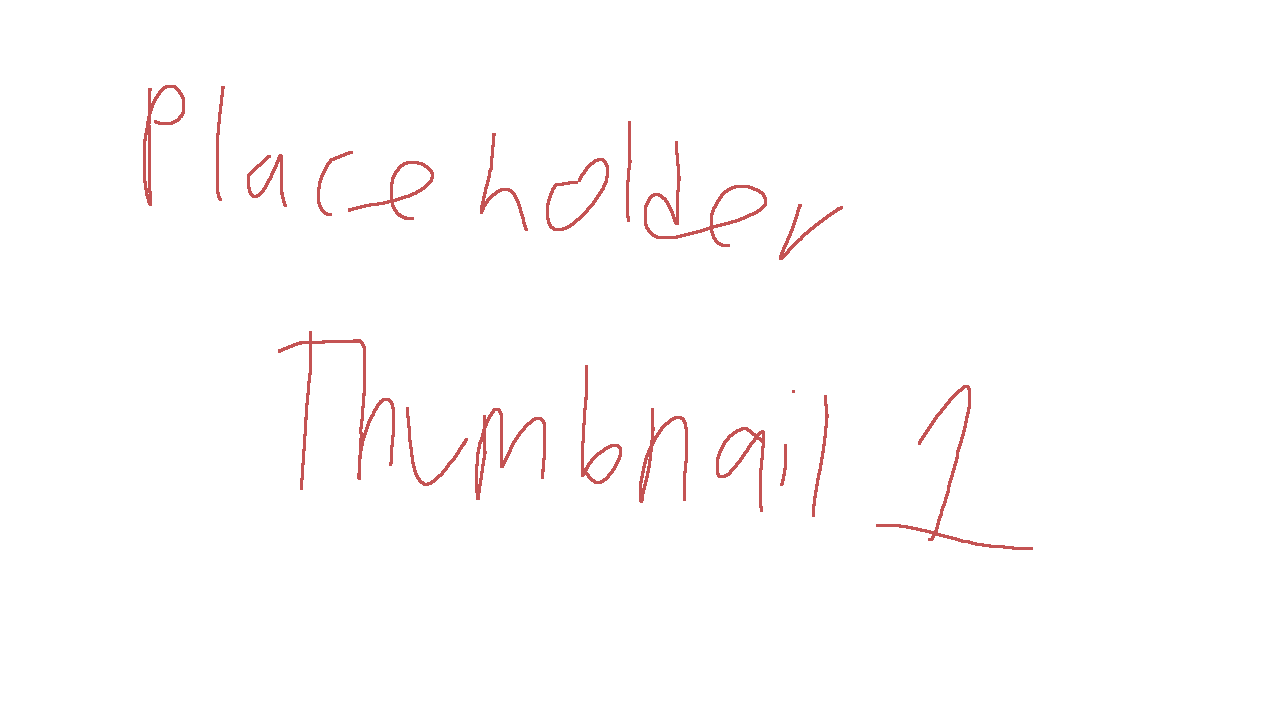 Placeholder
Thumbnail 1